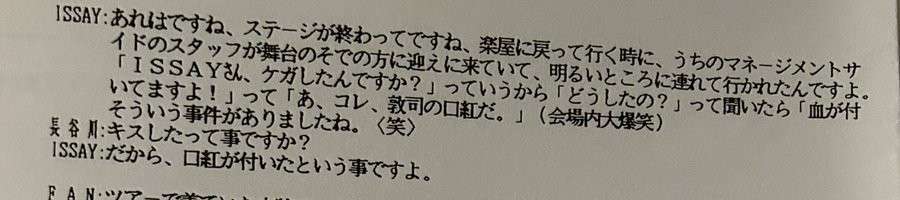 ISSAY:あれはですね、ステージが終わってですね、楽屋に戻って行く時に、うちのマネージメントサ
イドのスタッフが舞台のそでの方に迎えに来ていて、明るいところに連れて行かれたんですよ。
「ＩＳＳＡＹさん、ケガしたんですか？」っていうから「どうしたの？」って聞いたら「血が付
いてますよ！」って「あ、コレ、敦司の口紅だ。」（会場内大爆笑）
そういう事件がありましたね。〈笑〉
長谷川:キスしたって事ですか？
ISSAY:だから、口紅が付いたという事ですよ。
ＦＡＮ:ツアーで着ていた